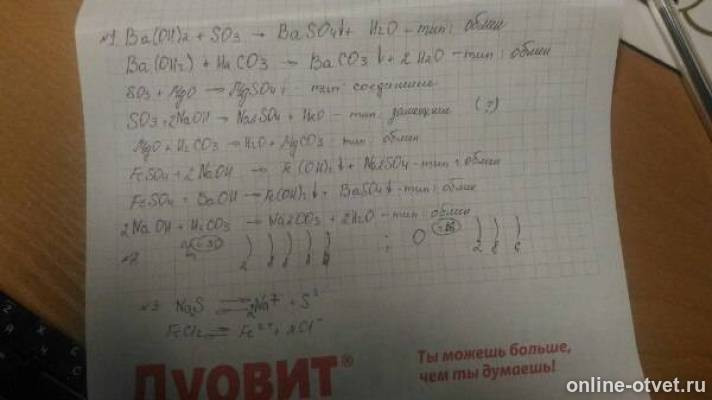 №1. Ba(OH)2 + SO3 → BaSO4↓ + H2O - тип: обмен
Ba(OH2) + H2CO3 → BaCO3↓ + 2H2O - тип: обмен
SO3 + MgO → MgSO4 - тип: соединение
SO3 + 2NaOH → Na2SO4 + H2O - тип: замещение (?)
MgO + H2CO3 → H2O + MgCO3 тип: обмен
FeSO4 + 2NaOH → Fe(OH)2↓ + Na2SO4 - тип: обмен
FeSO4 + BaOH → Fe(OH)2↓ + BaSO4↓ - тип: обмен
2NaOH + H2CO3 → Na2CO3 + 2H2O - тип: обмен
№2 ) ) ) ) ) ; O ) ) )
№3 Na2S ⇄ 2Na+ + S2-
FeCl2 ⇄ Fe2+ + 2Cl-
Дуовит®
Ты можешь больше,
чем ты думаешь!
online-otvet.ru